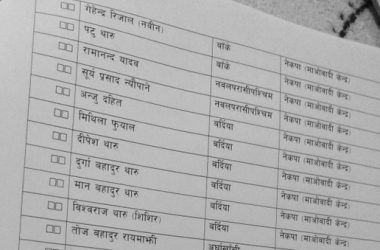 गेहेन्द्र रिजाल (नवीन) बाँके नेकपा (माओवादी केन्द्र)
पटु थारु बाँके नेकपा (माओवादी केन्द्र)
रामानन्द यादव नवलपरासीपश्चिम नेकपा (माओवादी केन्द्र)
सूर्य प्रसाद न्यौपाने नवलपरासीपश्चिम नेकपा (माओवादी केन्द्र)
अन्जु दहित बर्दिया नेकपा (माओवादी केन्द्र)
मिथिला फुयाल बर्दिया नेकपा (माओवादी केन्द्र)
दीपेश थारु बर्दिया नेकपा (माओवादी केन्द्र)
दुर्गा बहादुर थारु बर्दिया नेकपा (माओवादी केन्द्र)
मान बहादुर थारु बर्दिया नेकपा (माओवादी केन्द्र)
विश्वराज थारु (शिशिर) बर्दिया
तोज बहादुर रायमाझी